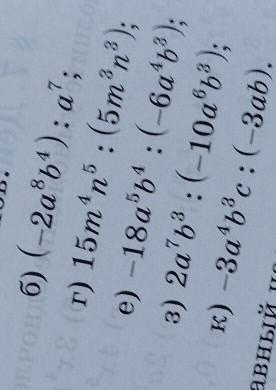 б) (−2a⁸b⁴) : a⁷;
г) 15m⁴n⁵ : (5m³n³);
е) −18a⁵b⁴ : (−6a⁴b³);
з) 2a⁷b³ : (−10a⁶b³);
к) −3a⁴b³c : (−3ab).